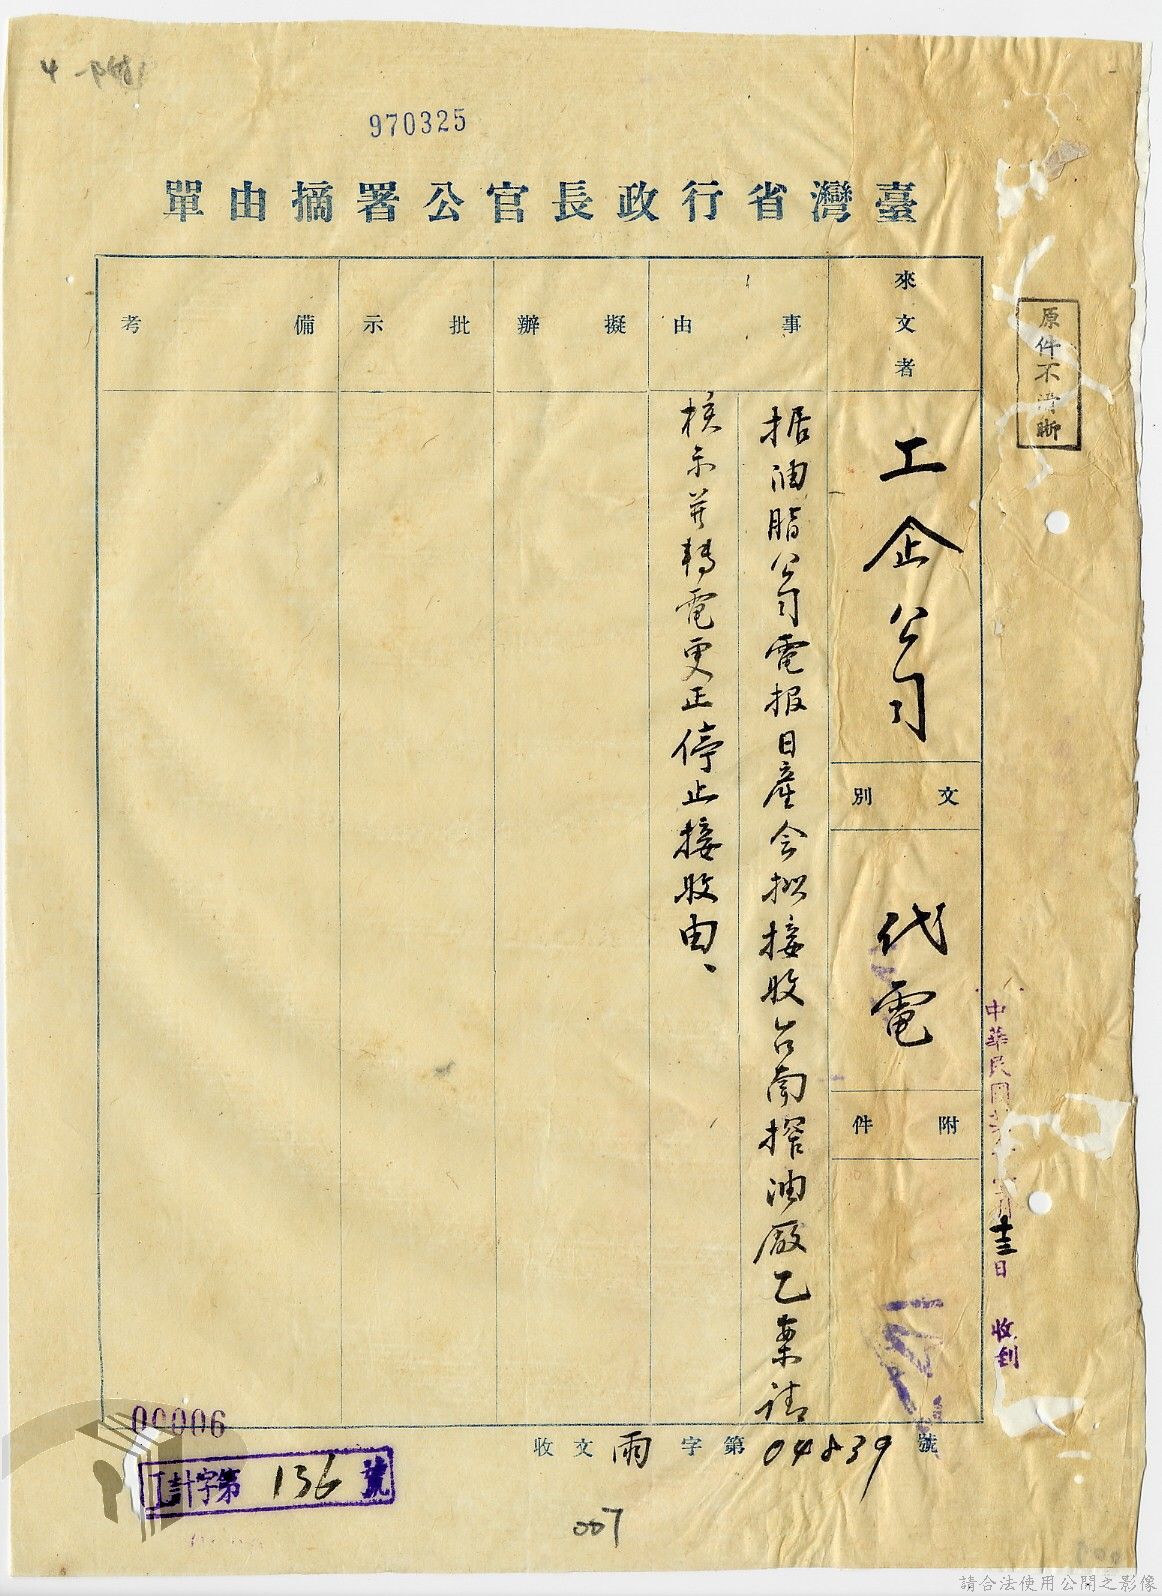 970325
臺灣省行政長官公署摘由單
原件不清晰
來文者
工企公司
文別
代電
附件
事由
据油脂公司電报日產会拟接收台南搾油廠乙案請
核示並轉電更正停止接收由、
擬辦
批示
備考
中華民國
月十三日
收到
收文雨字第04839號
00006
工計字第136號
007
請合法使用公開之影像